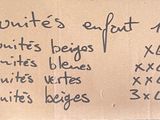 unités enfant 1
unités beiges x
unités bleues xx
unités vertes xx
nités beiges 3x